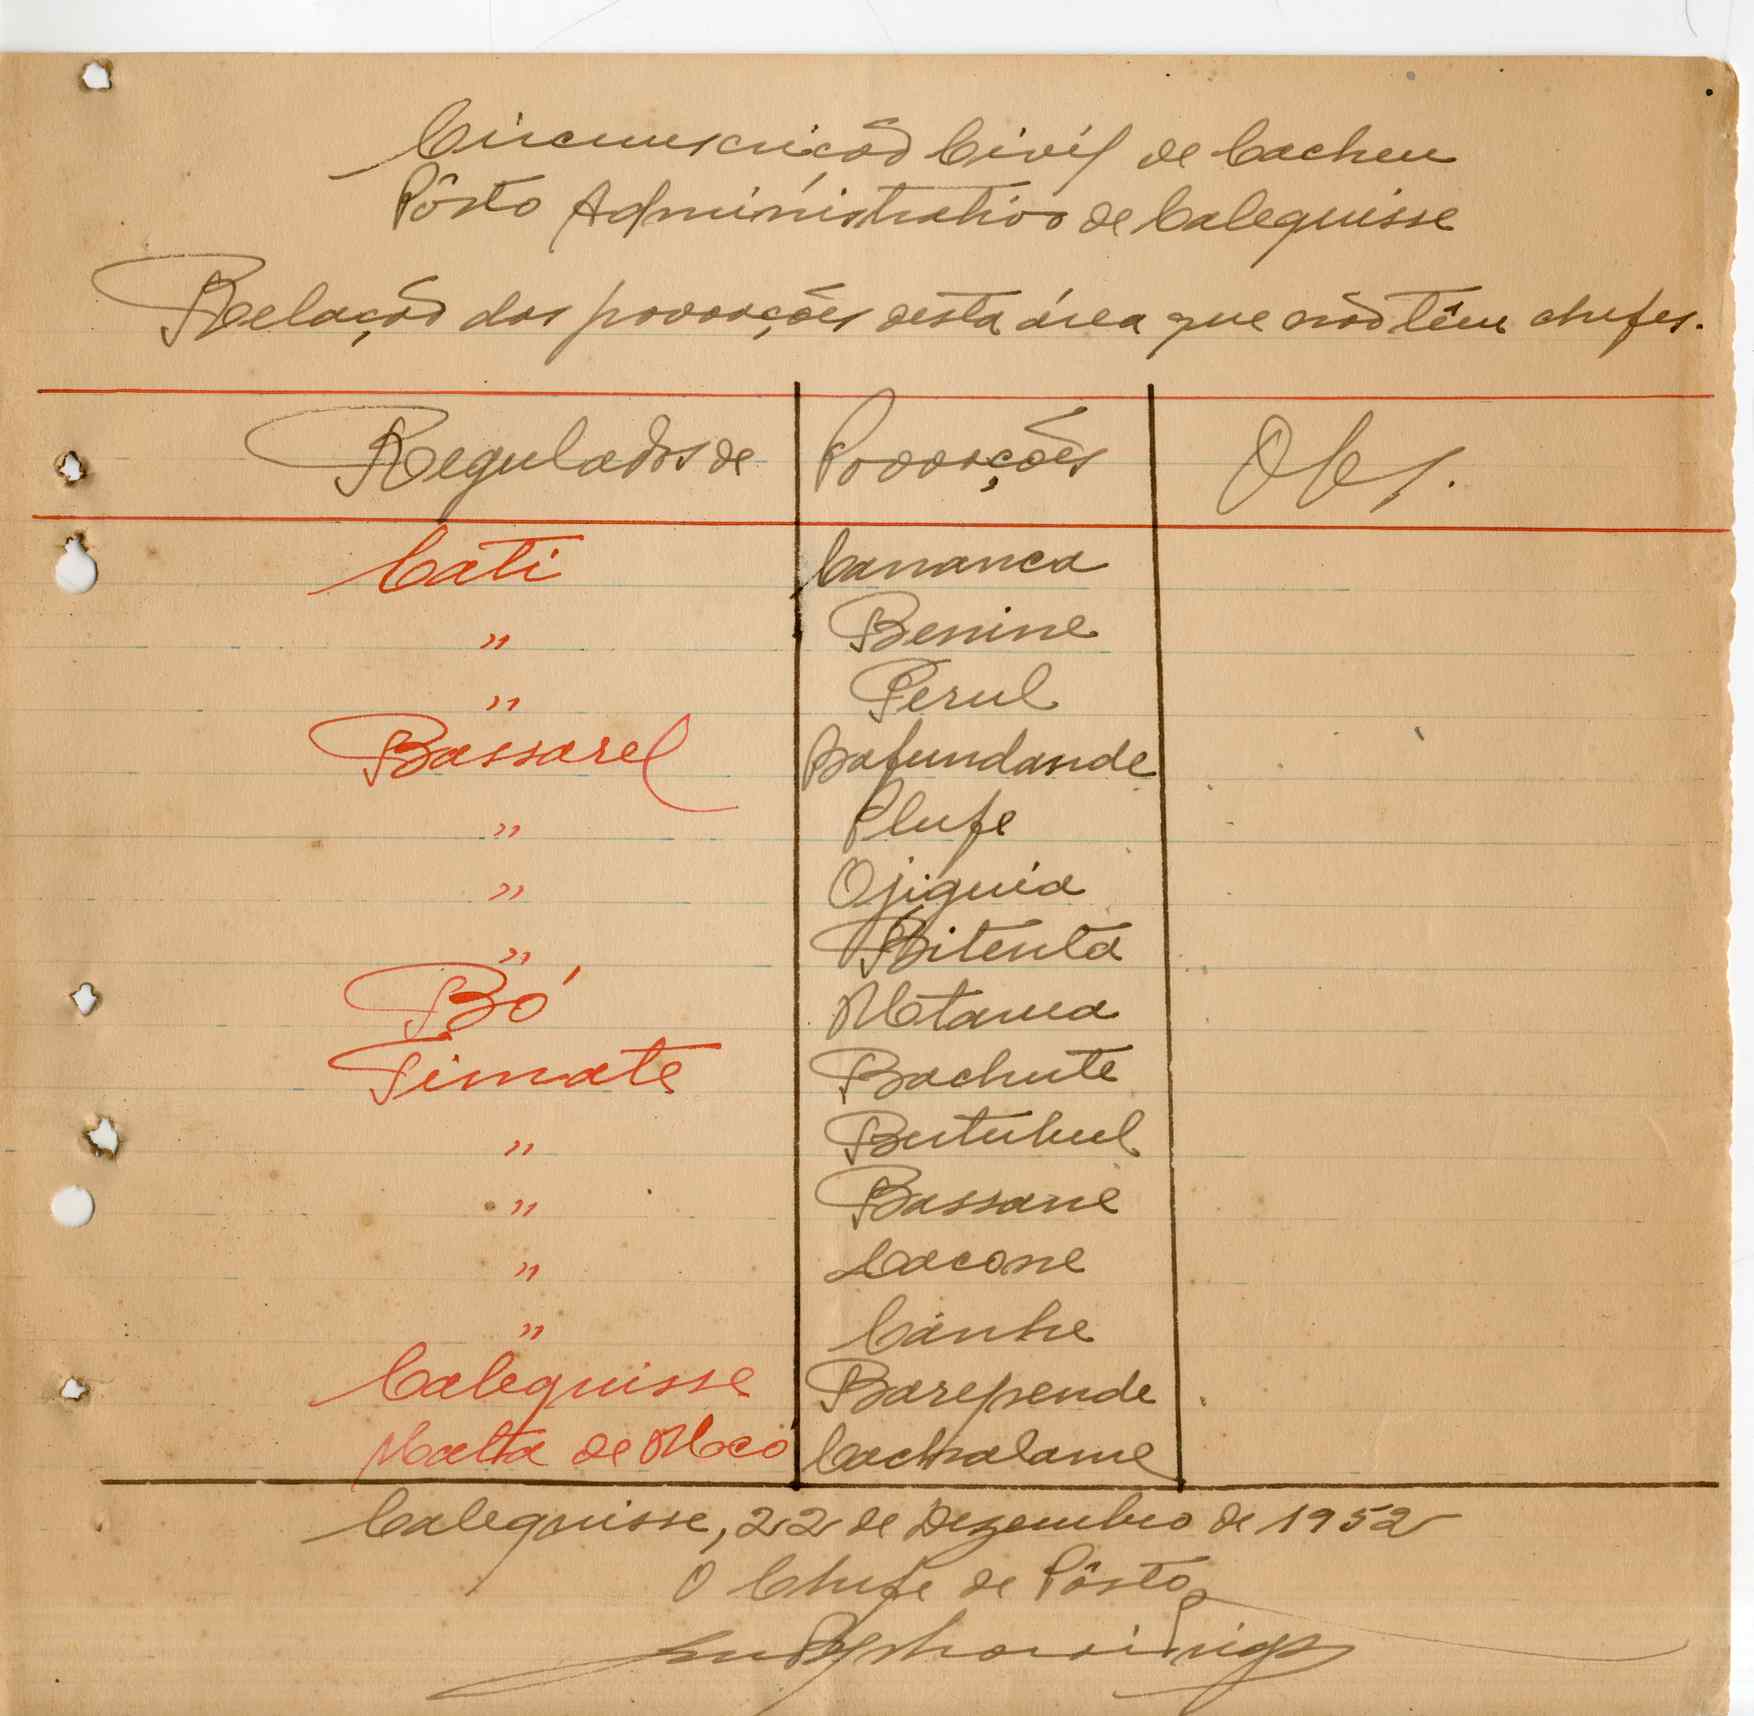 Circunscrição Civil de Cacheu
Pôsto Administrativo de Calequisse
Relação das povoações desta área que não têm chefes.
Regulados de Povoações Obs.
Cati Cananca
" Benine
" Perul
Bassarel Bafundande
" Plufe
" Ojiguia
" Bitenta
Bó Matama
Timate Bachute
" Butuhul
" Bassane
" Cacone
" Canhe
Calequisse Barepende
Mata de Macó Cachalame
Calequisse, 22 de Dezembro de 1952
O Chefe de Pôsto,